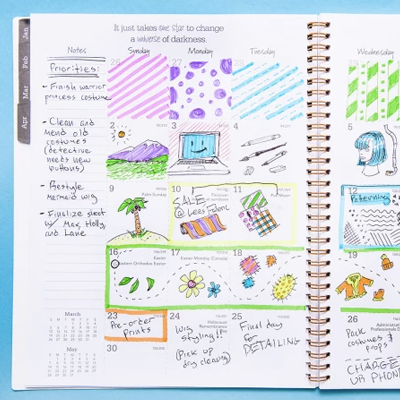 It just takes one star to change
a universe of darkness.
Jan
Feb
Mar
Apr
Notes
Sunday
Monday
Tuesday
Wednesday
Priorities:
- Finish warrior
process costume
- Clean and
mend old
costumes
(detective
needs new
buttons)
- Restyle
mermaid wig
- Finalize shoot
w/ Max, Holly,
and Lane
2
3
4
5
9
10
11
12
SALE
@ Lees Fabric
Patterning
16
17
18
19
Eastern Orthodox Easter
Easter Monday (Canada)
23
24
25
26
Pre-order
Prints
Wig
Styling!!
(Pick up
dry cleaning)
Final day
for
DETAILING
Pack
costumes &
props
CHARGE
UP PHONE
30
March
May